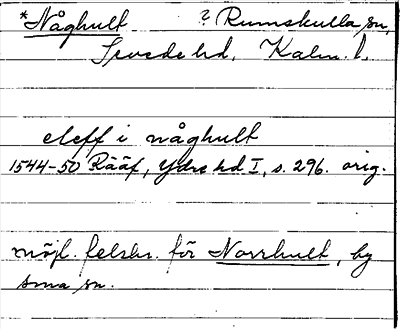 *Någhult ? Rumskulla sn,
Sevede hd, Kalm. l.
eleff i någhult
1544-50 Rääf, Ydre hd I, s. 296. orig.
möjl. felskr. för Norrhult, by
sma sn.